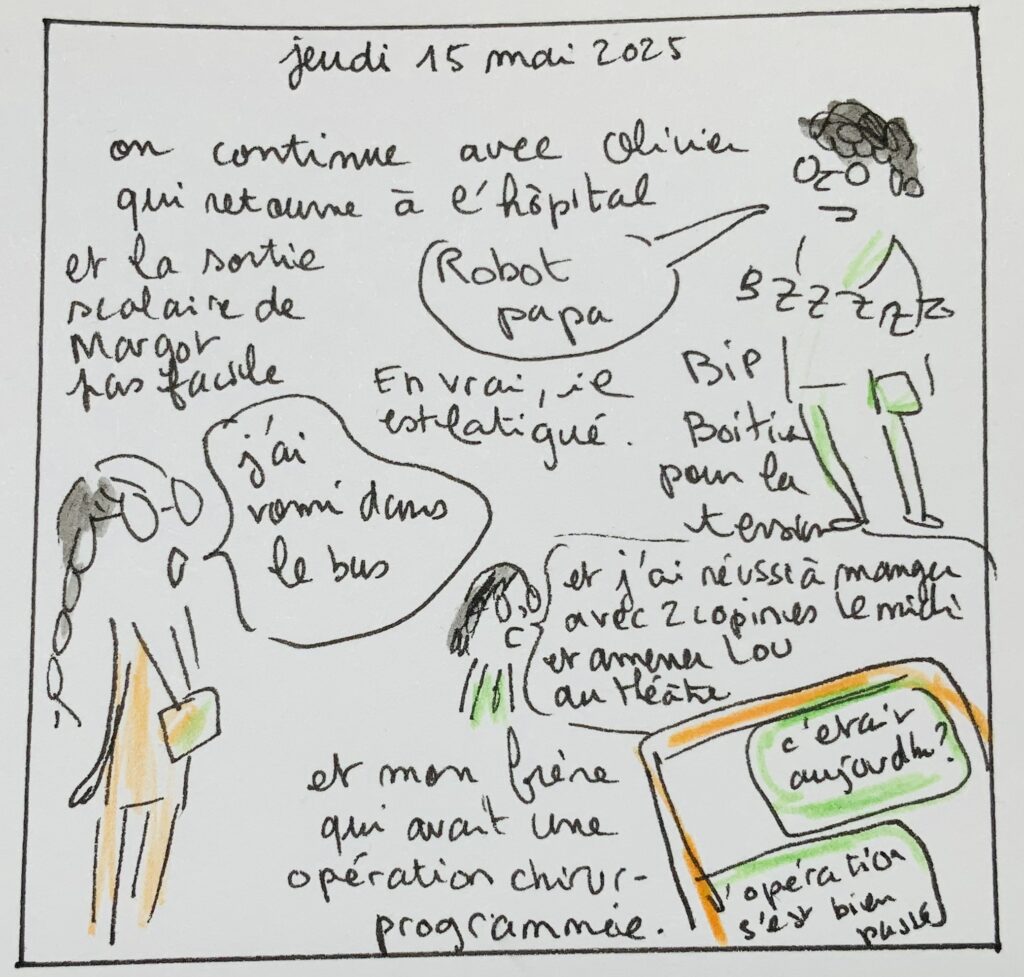 jeudi 15 mai 2025
on continue avec Olivier
qui retourne à l'hôpital
et la sortie
scolaire de
Margot
pas facile
Robot
papa
BZZZZZZ
BiP
Boitier
pour la
tension
En vrai, il
est fatigué.
j'ai
vomi dans
le bus
et j'ai réussi à manger
avec 2 copines le midi
et amener Lou
au théâtre
et mon frère
qui avait une
opération chirur-
programmée.
c'était
aujourd'hu?
l'opération
s'est bien
passée